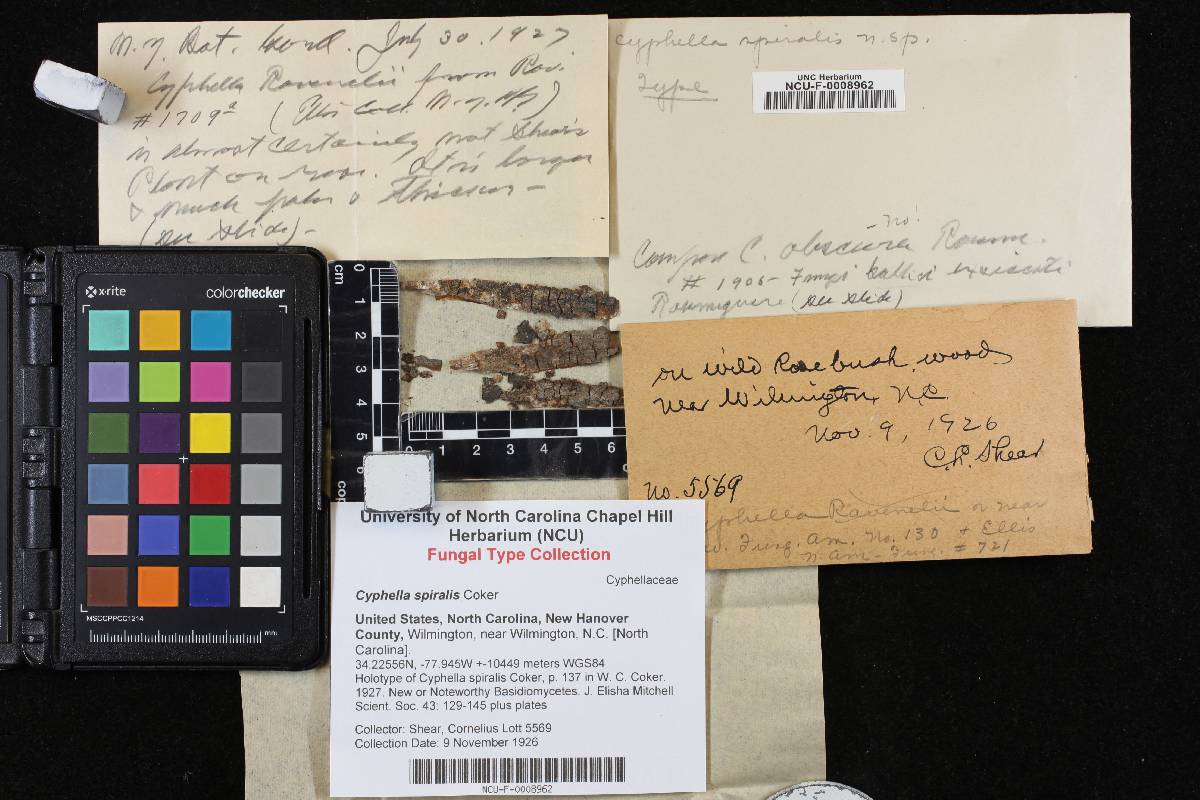 N.Y. Bot. Gard. July 30. 1927
Cyphella Ravenelii from Rav.
# 1709ª (Ellis Coll. N.Y.)
is almost certainly not Shear's
Plant on rose. It is larger
& much paler & thicker -
(see slide) -
Cyphella spiralis n.sp.
Type
UNC Herbarium
NCU-F-0008962
- no!
Compare C. obscura Roum.
# 1906 - Fungi Gallici exsiccati
Roumeguere (see slide)
on wild Rose bush, woods
near Wilmington, N.C.
Nov. 9, 1926
C.L. Shear
No. 5569
Cyphella Ravenelii or near
Fung. Am. No. 130 & Ellis
N. Am. Fung. # 721
x-rite colorchecker
MSCCPPCC1214
mm
cm
0 1 2 3 4 5
0 1 2 3 4 5 6
University of North Carolina Chapel Hill
Herbarium (NCU)
Fungal Type Collection
Cyphellaceae
Cyphella spiralis Coker
United States, North Carolina, New Hanover
County, Wilmington, near Wilmington, N.C. [North
Carolina].
34.22556N, -77.945W +-10449 meters WGS84
Holotype of Cyphella spiralis Coker, p. 137 in W. C. Coker.
1927. New or Noteworthy Basidiomycetes. J. Elisha Mitchell
Scient. Soc. 43: 129-145 plus plates
Collector: Shear, Cornelius Lott 5569
Collection Date: 9 November 1926
NCU-F-0008962